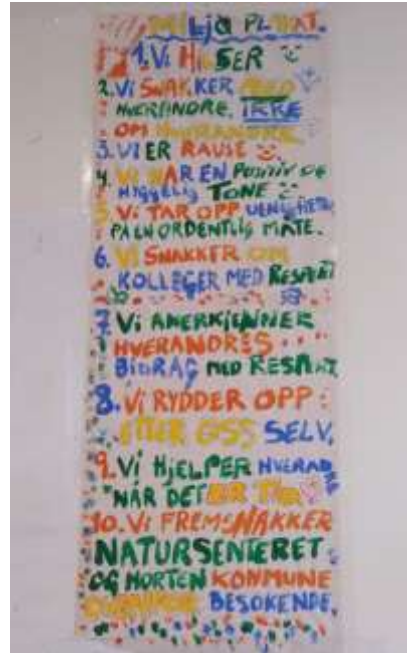 MILJØ PLAKAT.
1. Vi HILSER
2. Vi SNAKKER MED
HVERANDRE, IKKE
OM HVERANDRE
3. Vi ER RAUSE
4. Vi HAR EN POSiTiV OG
HYGGELIG TONE
5. Vi TAR OPP UENIGHETER
PÅ EN ORDENTLIG MÅTE.
6. Vi SNAKKER OM
KOLLEGER MED RESPEKT
7. Vi ANERKJENNER
HVERANDRES
BIDRAG MED RESPEKT
8. Vi RYDDER OPP
ETTER OSS SELV.
9. Vi HJELPER HVERANDRE
NÅR DET ER TID
10. Vi FREMSNAKKER
NATURSENTERET
OG HORTEN KOMMUNE
BESØKENDE.